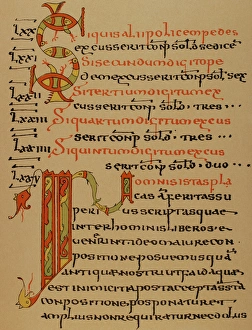 LXX Siquis alii police pedes
excusserit conp sold sedece
LXXI Si secundum digito pe
dem excusserit conp sold sex
LXXII Si tertium digitum ex
cusserit conp sold tres ...
LXXIII Si quartum digitum excus
serit conp sold tres ...
LXXIIII Si quintum digitum excus
serit conp sold duo ...
In omnis istas pla
cas aperitas su
perius scriptas quae
inter hominis liberos e
uenerint ideo maiore con
positione posuemus qua
antiquae nostri ut faida quo
est inimicitia post acceptas sta
conpositione posponatur et
amplius non requiratur nec do